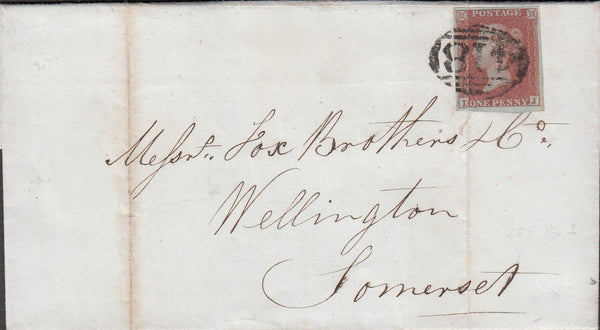 POSTAGE
ONE PENNY
Messrs. Fox Brothers & Co.,
Wellington
Somerset